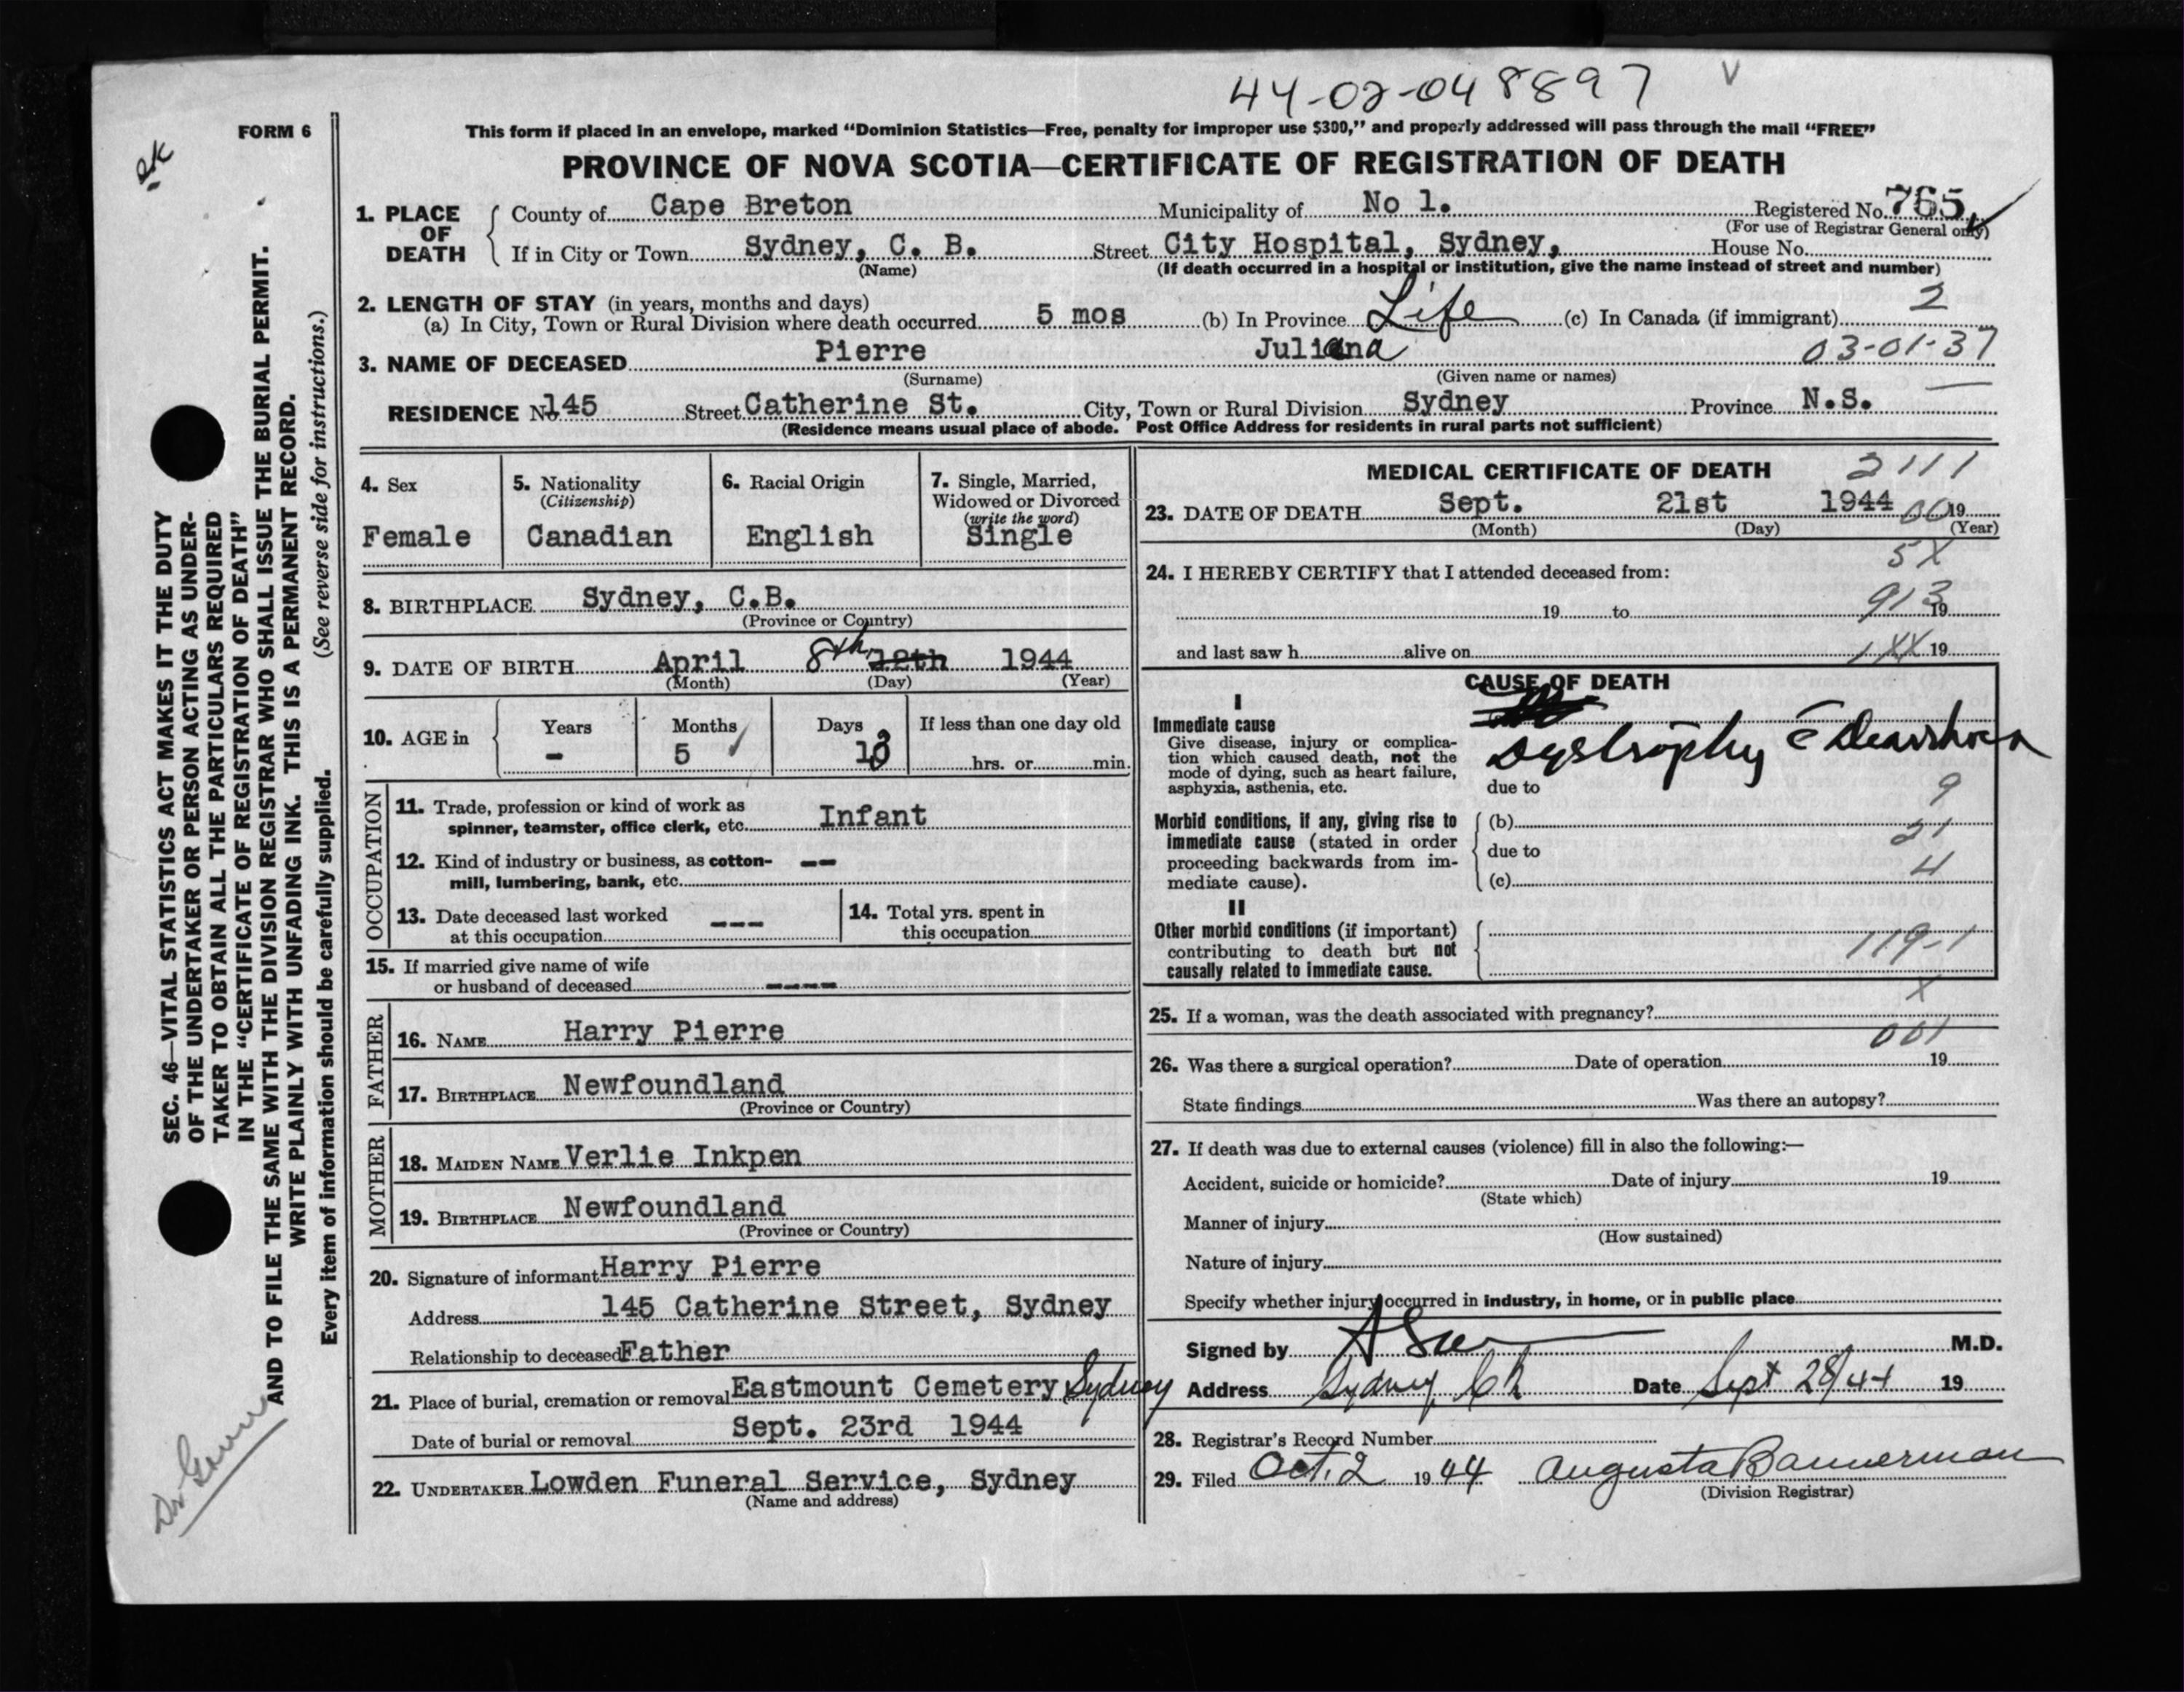 44-02-048897 V
FORM 6
This form if placed in an envelope, marked "Dominion Statistics—Free, penalty for improper use $300," and properly addressed will pass through the mail "FREE"
PROVINCE OF NOVA SCOTIA—CERTIFICATE OF REGISTRATION OF DEATH
1. PLACE OF DEATH County of Cape Breton Municipality of No 1. Registered No. 765
(For use of Registrar General only)
If in City or Town Sydney, C. B. Street City Hospital, Sydney, House No.
(Name) (If death occurred in a hospital or institution, give the name instead of street and number)
2. LENGTH OF STAY (in years, months and days) 2
(a) In City, Town or Rural Division where death occurred 5 mos (b) In Province Life (c) In Canada (if immigrant)
3. NAME OF DECEASED Pierre Juliana 03-01-37
(Surname) (Given name or names)
RESIDENCE No 145 Street Catherine St. City, Town or Rural Division Sydney Province N.S.
(Residence means usual place of abode. Post Office Address for residents in rural parts not sufficient)
4. Sex
Female
5. Nationality
(Citizenship)
Canadian
6. Racial Origin
English
7. Single, Married,
Widowed or Divorced
(write the word)
Single
8. BIRTHPLACE Sydney, C.B.
(Province or Country)
9. DATE OF BIRTH April 8th 12th 1944
(Month) (Day) (Year)
10. AGE in Years Months Days If less than one day old
- 5 13 hrs. or min.
OCCUPATION
11. Trade, profession or kind of work as
spinner, teamster, office clerk, etc. Infant
12. Kind of industry or business, as cotton- --
mill, lumbering, bank, etc.
13. Date deceased last worked ---
at this occupation
14. Total yrs. spent in
this occupation
15. If married give name of wife
or husband of deceased ----
FATHER
16. NAME Harry Pierre
17. BIRTHPLACE Newfoundland
(Province or Country)
MOTHER
18. MAIDEN NAME Verlie Inkpen
19. BIRTHPLACE Newfoundland
(Province or Country)
20. Signature of informant Harry Pierre
Address 145 Catherine Street, Sydney
Relationship to deceased Father
21. Place of burial, cremation or removal Eastmount Cemetery Sydney
Date of burial or removal Sept. 23rd 1944
22. UNDERTAKER Lowden Funeral Service, Sydney
(Name and address)
MEDICAL CERTIFICATE OF DEATH 2111
23. DATE OF DEATH Sept. 21st 1944 00 19
(Month) (Day) (Year)
5X
24. I HEREBY CERTIFY that I attended deceased from:
19 to 913 19
and last saw h alive on 1XX 19
CAUSE OF DEATH
I
Immediate cause
Give disease, injury or complica-
tion which caused death, not the
mode of dying, such as heart failure,
asphyxia, asthenia, etc.
Dystrophy c̄ Diarrhoea
due to
9
Morbid conditions, if any, giving rise to
immediate cause (stated in order
proceeding backwards from im-
mediate cause).
(b)
21
due to
4
(c)
II
Other morbid conditions (if important)
contributing to death but not
causally related to immediate cause.
119-1
X
25. If a woman, was the death associated with pregnancy?
001
26. Was there a surgical operation? Date of operation 19
State findings Was there an autopsy?
27. If death was due to external causes (violence) fill in also the following:—
Accident, suicide or homicide? Date of injury 19
(State which)
Manner of injury
(How sustained)
Nature of injury
Specify whether injury occurred in industry, in home, or in public place
Signed by M.D.
Address Sydney Date Sept 28/44 19
28. Registrar's Record Number
29. Filed Oct. 2 1944 Augusta Bannerman
(Division Registrar)
SEC. 46—VITAL STATISTICS ACT MAKES IT THE DUTY
OF THE UNDERTAKER OR PERSON ACTING AS UNDER-
TAKER TO OBTAIN ALL THE PARTICULARS REQUIRED
IN THE "CERTIFICATE OF REGISTRATION OF DEATH"
AND TO FILE THE SAME WITH THE DIVISION REGISTRAR WHO SHALL ISSUE THE BURIAL PERMIT.
WRITE PLAINLY WITH UNFADING INK. THIS IS A PERMANENT RECORD.
Every item of information should be carefully supplied. (See reverse side for instructions.)